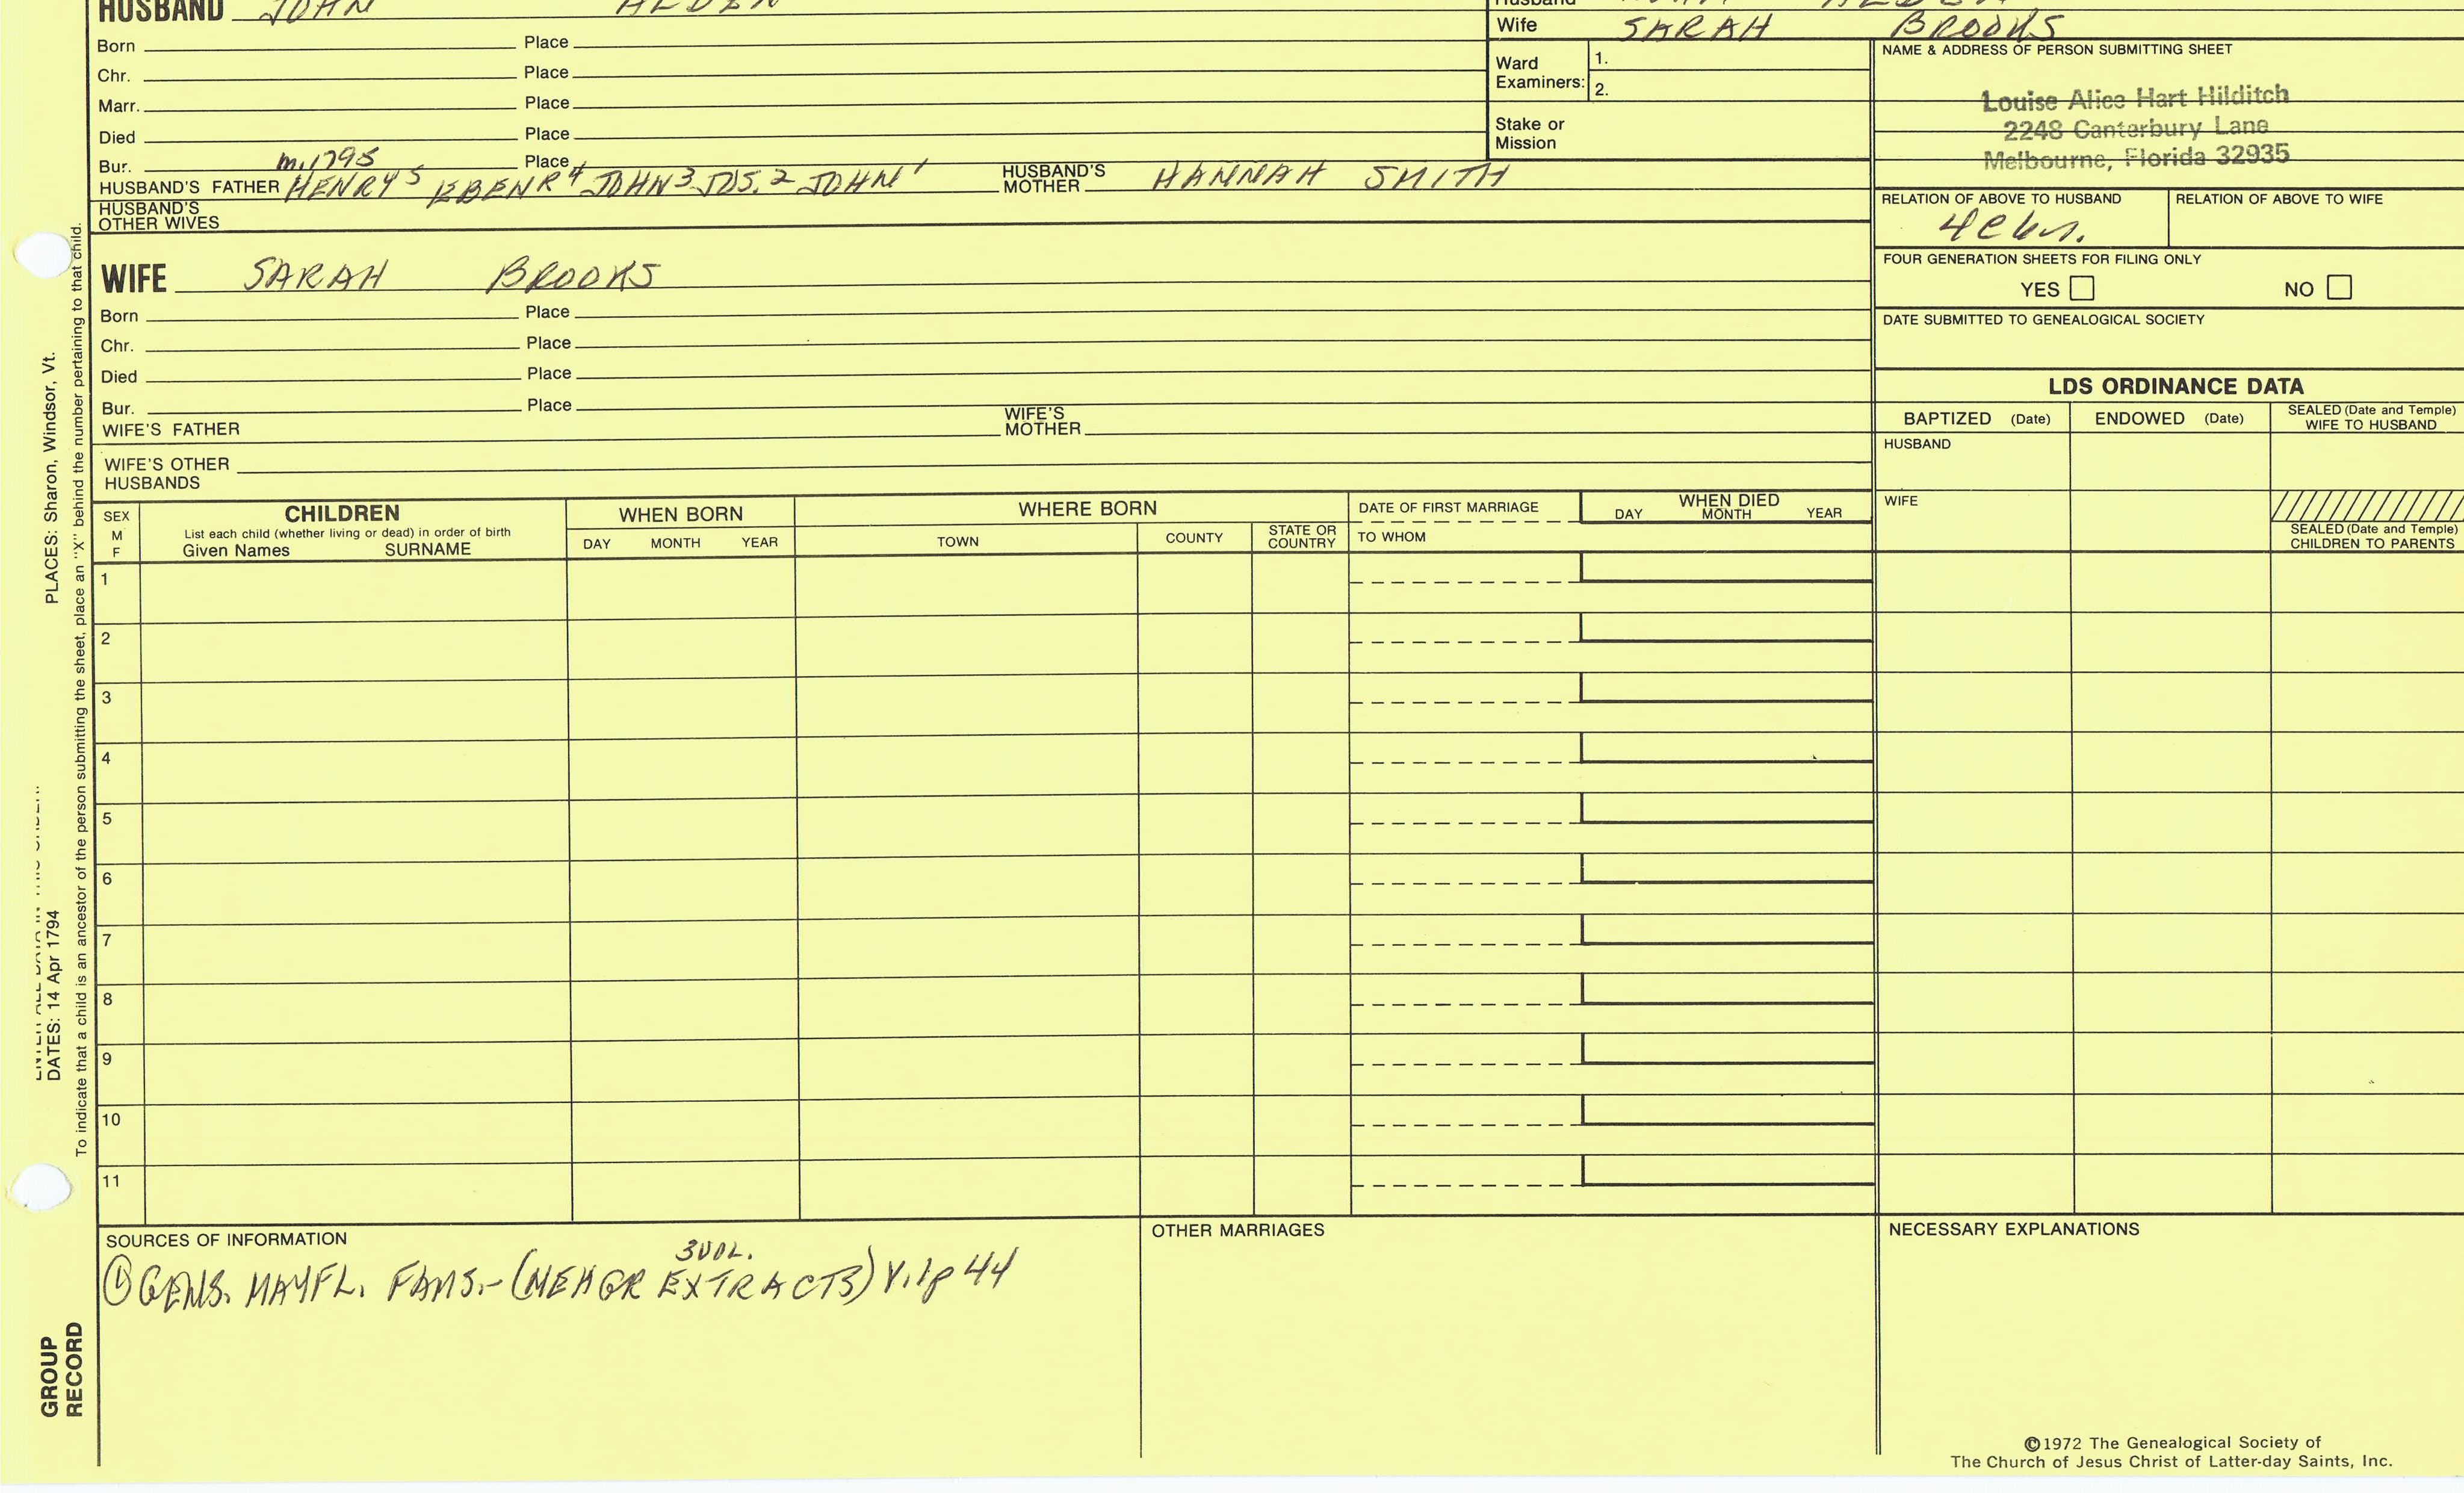 HUSBAND JOHN ALDEN
Husband ALDEN
Wife SARAH BROOKS
Born Place
Chr. Place
Marr. Place
Died Place
Bur. Place
Ward Examiners: 1.
2.
Stake or Mission
NAME & ADDRESS OF PERSON SUBMITTING SHEET
Louise Alice Hart Hilditch
2248 Canterbury Lane
Melbourne, Florida 32935
m.1795
HUSBAND'S FATHER HENRY5 EBENR4 JOHN3 JOS.2 JOHN1 HUSBAND'S MOTHER HANNAH SMITH
HUSBAND'S OTHER WIVES
RELATION OF ABOVE TO HUSBAND RELATION OF ABOVE TO WIFE
FOUR GENERATION SHEETS FOR FILING ONLY
YES NO
DATE SUBMITTED TO GENEALOGICAL SOCIETY
WIFE SARAH BROOKS
Born Place
Chr. Place
Died Place
Bur. Place
WIFE'S FATHER WIFE'S MOTHER
WIFE'S OTHER HUSBANDS
LDS ORDINANCE DATA
BAPTIZED (Date) ENDOWED (Date) SEALED (Date and Temple) WIFE TO HUSBAND
HUSBAND
WIFE
SEALED (Date and Temple) CHILDREN TO PARENTS
SEX M F
CHILDREN
List each child (whether living or dead) in order of birth
Given Names SURNAME
WHEN BORN
DAY MONTH YEAR
WHERE BORN
TOWN COUNTY STATE OR COUNTRY
DATE OF FIRST MARRIAGE
TO WHOM
WHEN DIED
DAY MONTH YEAR
1
2
3
4
5
6
7
8
9
10
11
SOURCES OF INFORMATION
3VOL.
① GENS. MAYFL. FAMS.-(NEHGR EXTRACTS) V.1p 44
OTHER MARRIAGES
NECESSARY EXPLANATIONS
©1972 The Genealogical Society of
The Church of Jesus Christ of Latter-day Saints, Inc.
PLACES: Sharon, Windsor, Vt.
DATES: 14 Apr 1794
To indicate that a child is an ancestor of the person submitting the sheet, place an "X" behind the number pertaining to that child.
GROUP
RECORD